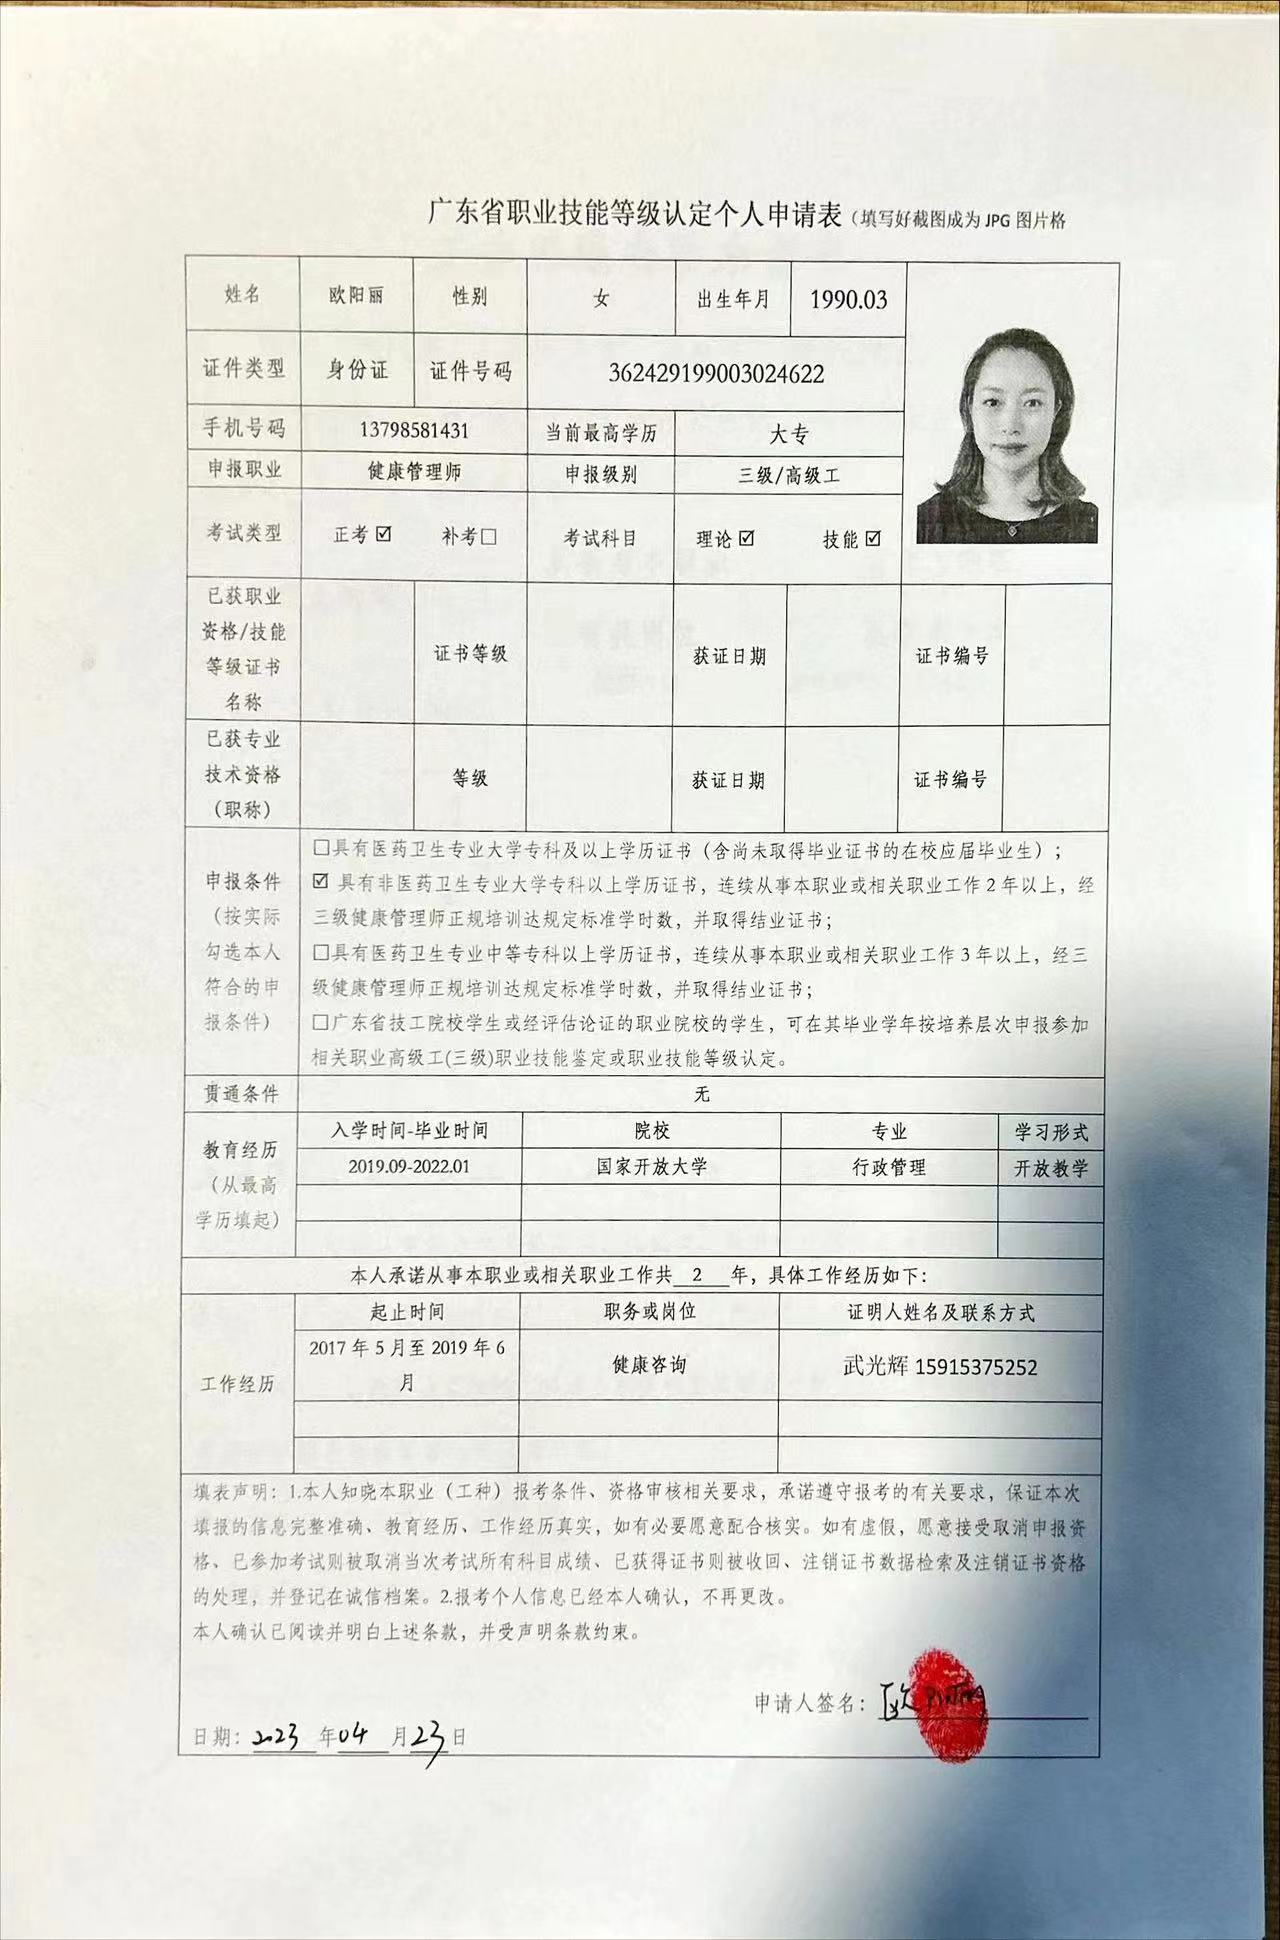 广东省职业技能等级认定个人申请表（填写好截图成为 JPG 图片格
姓名 欧阳丽 性别 女 出生年月 1990.03
证件类型 身份证 证件号码 362429199003024622
手机号码 13798581431 当前最高学历 大专
申报职业 健康管理师 申报级别 三级/高级工
考试类型 正考☑ 补考☐ 考试科目 理论☑ 技能☑
已获职业
资格/技能
等级证书
名称
证书等级 获证日期 证书编号
已获专业
技术资格
（职称）
等级 获证日期 证书编号
申报条件
（按实际
勾选本人
符合的申
报条件）
☐具有医药卫生专业大学专科及以上学历证书（含尚未取得毕业证书的在校应届毕业生）；
☑ 具有非医药卫生专业大学专科以上学历证书，连续从事本职业或相关职业工作 2 年以上，经
三级健康管理师正规培训达规定标准学时数，并取得结业证书；
☐具有医药卫生专业中等专科以上学历证书，连续从事本职业或相关职业工作 3 年以上，经三
级健康管理师正规培训达规定标准学时数，并取得结业证书；
☐广东省技工院校学生或经评估论证的职业院校的学生，可在其毕业学年按培养层次申报参加
相关职业高级工(三级)职业技能鉴定或职业技能等级认定。
贯通条件 无
教育经历
（从最高
学历填起）
入学时间-毕业时间 院校 专业 学习形式
2019.09-2022.01 国家开放大学 行政管理 开放教学
本人承诺从事本职业或相关职业工作共 2 年，具体工作经历如下：
工作经历
起止时间 职务或岗位 证明人姓名及联系方式
2017 年 5 月至 2019 年 6
月
健康咨询 武光辉 15915375252
填表声明：1.本人知晓本职业（工种）报考条件、资格审核相关要求，承诺遵守报考的有关要求，保证本次
填报的信息完整准确、教育经历、工作经历真实，如有必要愿意配合核实。如有虚假，愿意接受取消申报资
格、已参加考试则被取消当次考试所有科目成绩、已获得证书则被收回、注销证书数据检索及注销证书资格
的处理，并登记在诚信档案。2.报考个人信息已经本人确认，不再更改。
本人确认已阅读并明白上述条款，并受声明条款约束。
申请人签名：欧
日期：2023 年 04 月 23 日